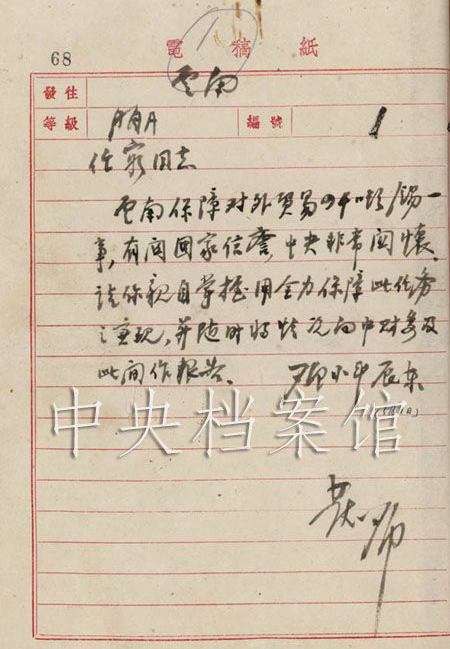 68
電稿紙
發往 云南
等級 AAA 編號 1
任穷同志
云南保障对外贸易
事，有関囯家信誉，中央非常関懷，
请你親自掌握用全力保障此任务
之实现，并随时将情况向中财委及
此间作报告。 邓小平 辰东
中央档案馆